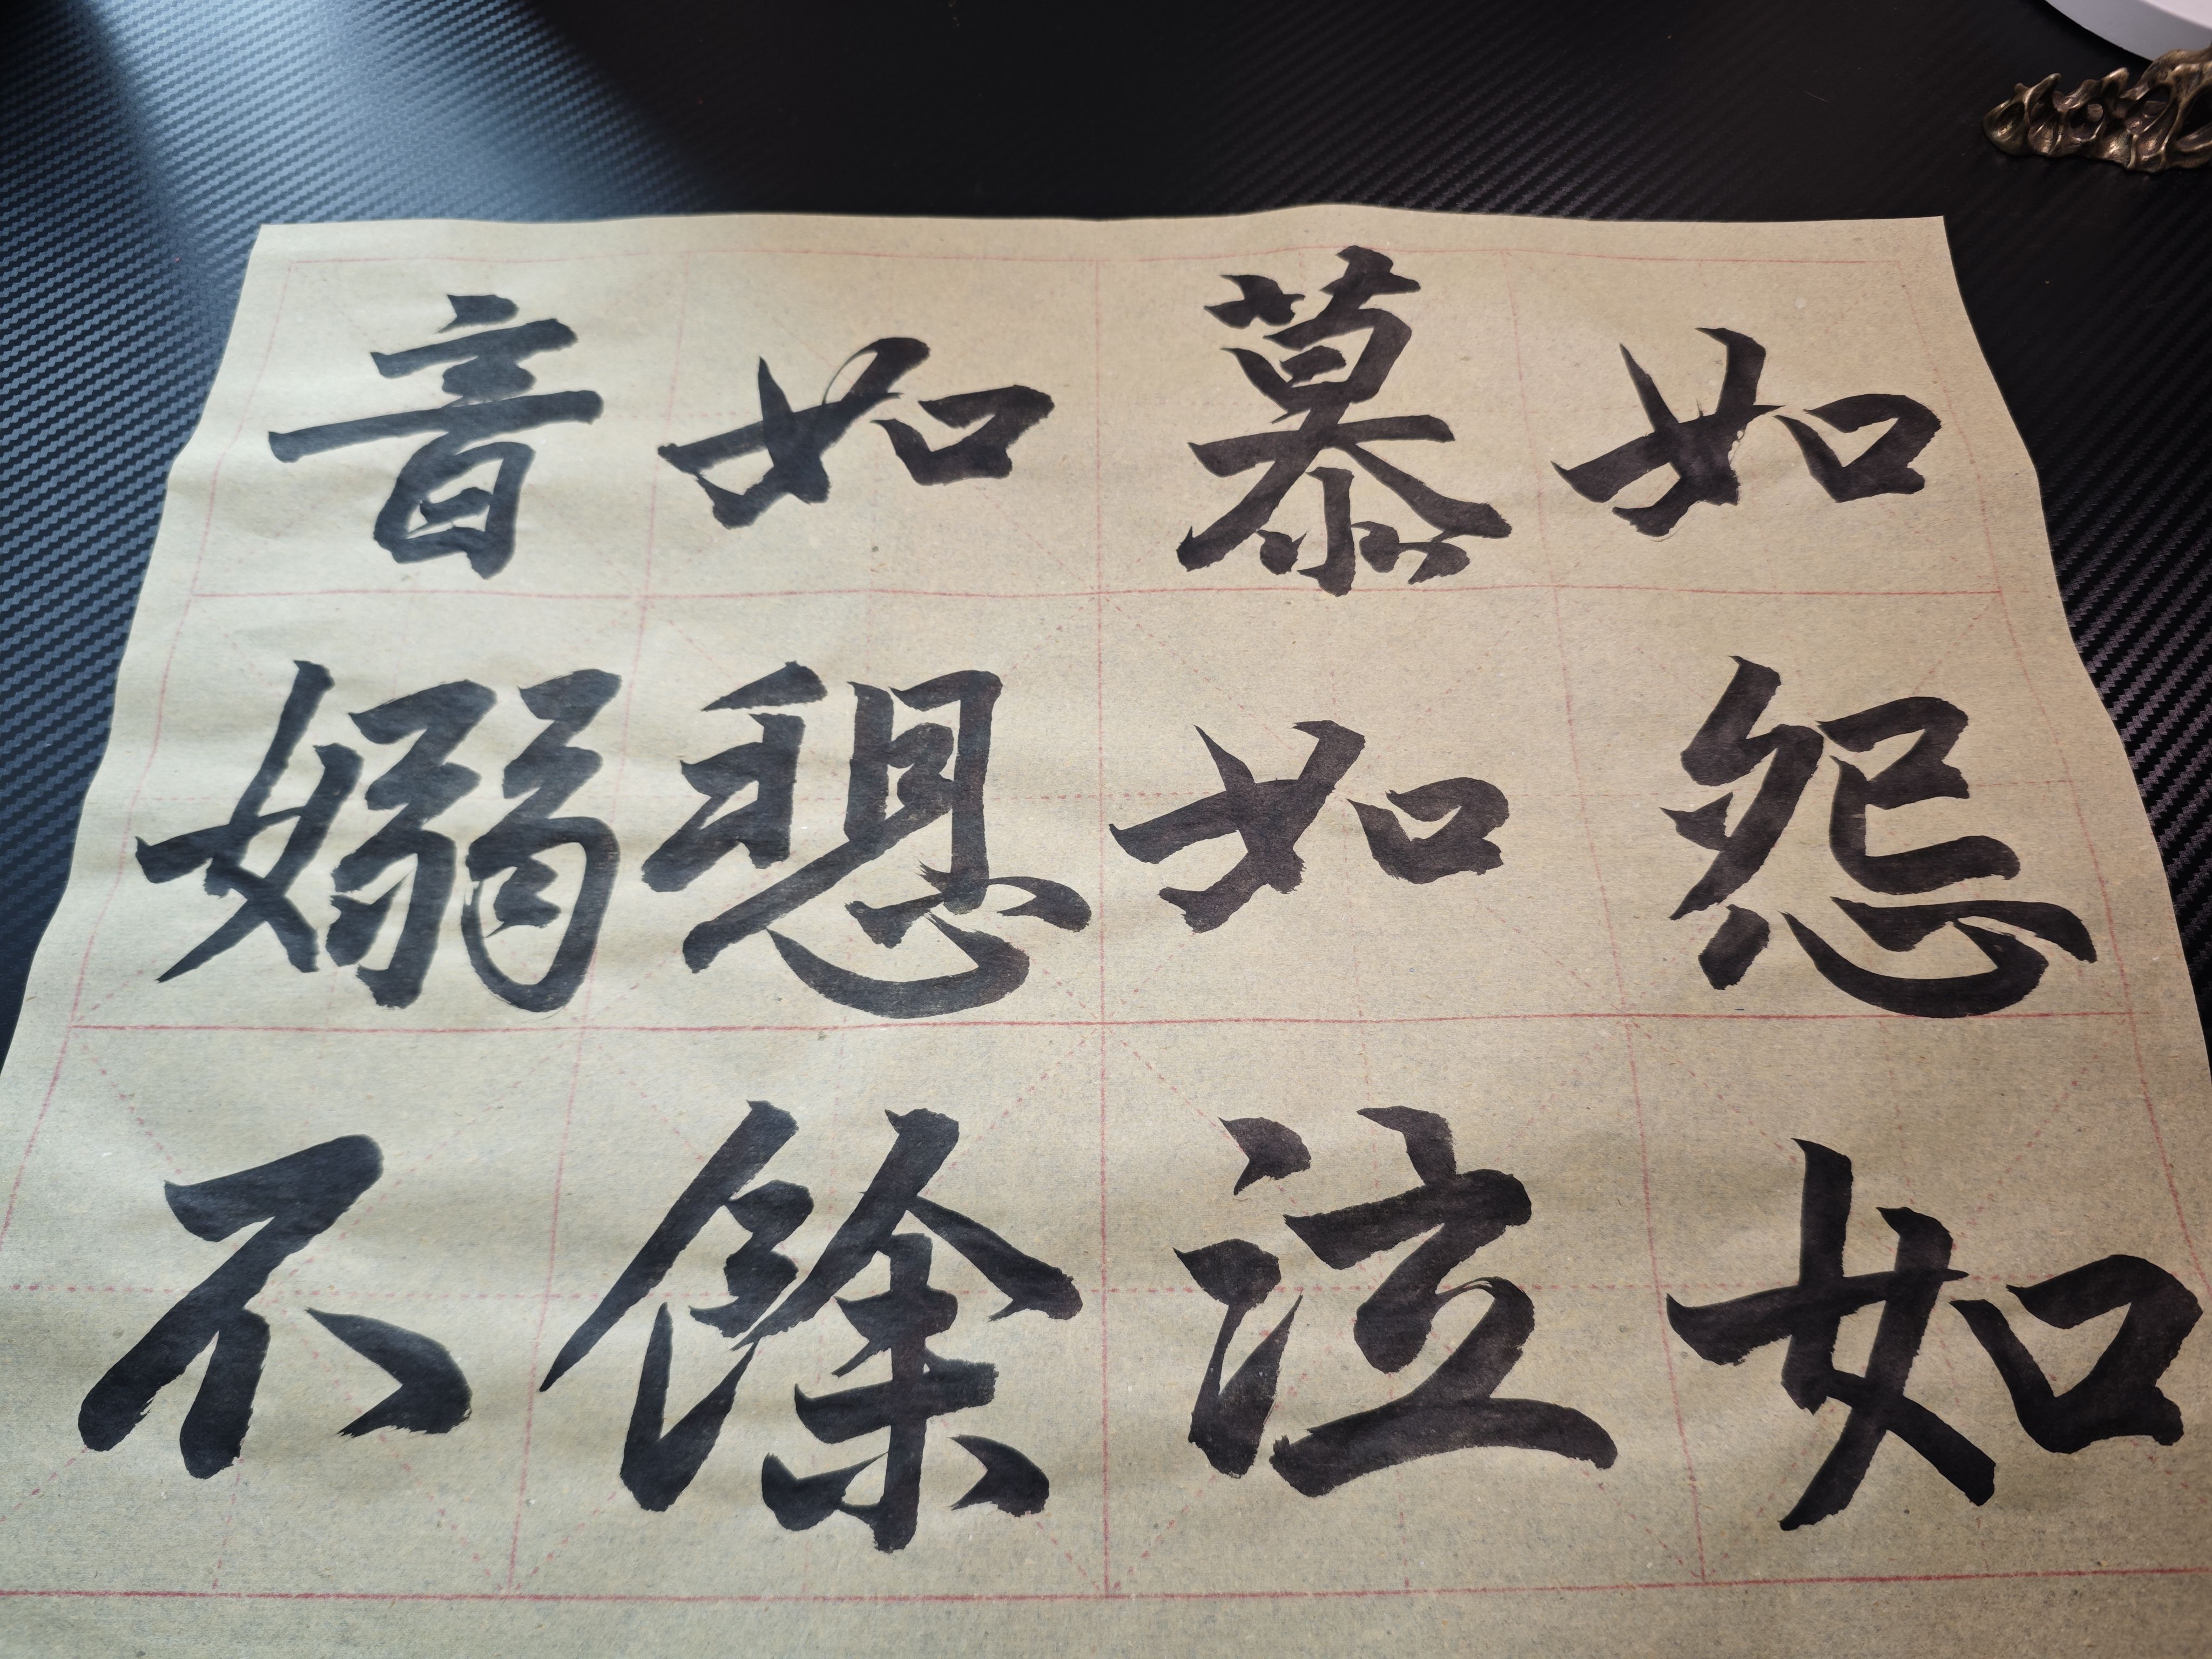 如怨如
慕如泣
如愬餘
音嫋不